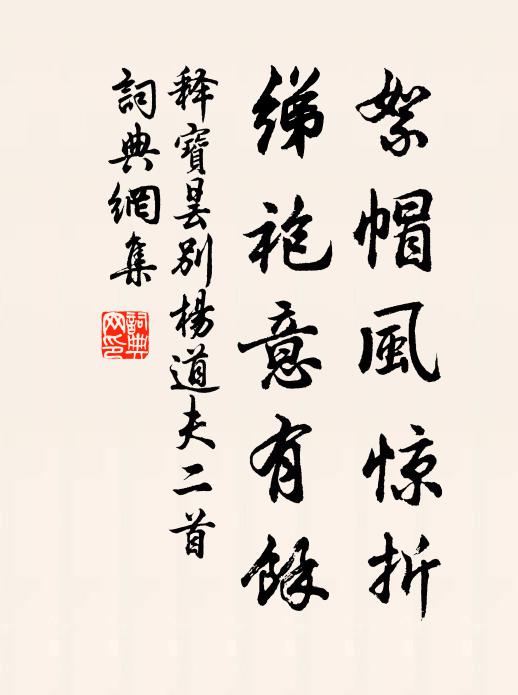 絮帽風惊折
綈袍意有餘
释寶曇别楊道夫二首
詞典網集
詞典網印